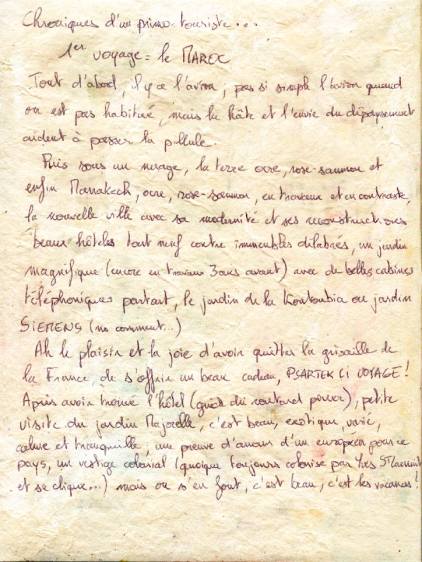 Chroniques d'un primo-touriste...
1er voyage = le MAROC
Tout d'abord, il y a l'avion, pas si simple l'avion quand
on est pas habitué, mais la hâte et l'envie du dépaysement
aident à passer la pillule.
Puis sous un nuage, la terre ocre, rose-saumon et
enfin Marrakech, ocre, rose-saumon, en travaux et en contraste,
la nouvelle ville avec sa modernité et ses reconstructions
beaux hôteles tout neuf contre immeubles délabrés, un jardin
magnifique (encore en travaux 3 ans avant) avec de belles cabines
téléphoniques partout, le jardin de la Koutoubia ou jardin
SIEMENS (no comment...)
Ah le plaisir et la joie d'avoir quitter la grisaille de
la France, de s'offrir un beau cadeau, PSARTEK CI VOYAGE!
Après avoir trouvé l'hôtel (guide du routard power), petite
visite du jardin Majorelle, c'est beau, exotique, varié,
calme et tranquille, une preuve d'amour d'un européen pour ce
pays, un vestige colonial (quoique toujours colonisé par Yves St Laurent
et sa clique...) mais on s'en fout, c'est beau, c'est les vacances!